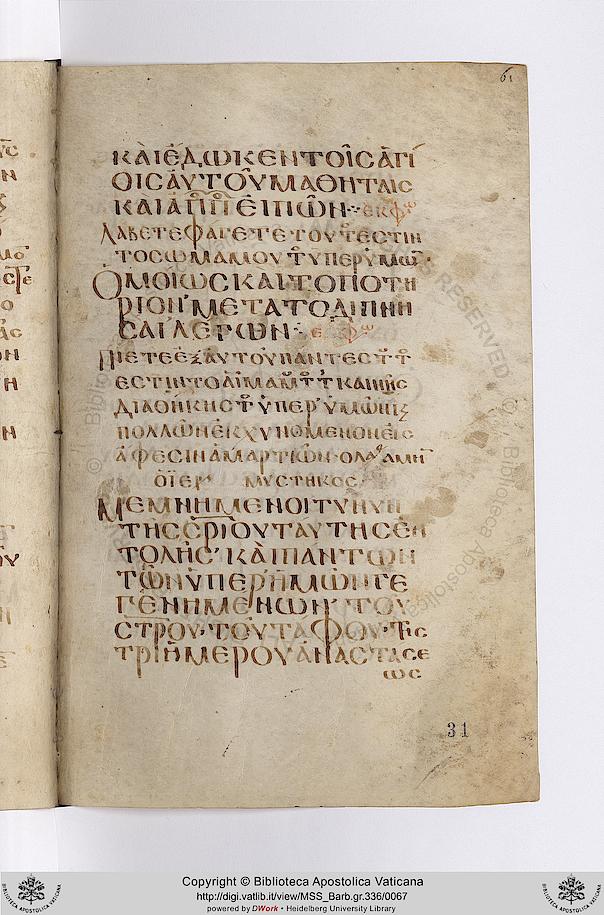 61
ΚΑΙ ΕΔΩΚΕΝ ΤΟΙΣ ΑΓΙ
ΟΙΣ ΑΥΤΟΥ ΜΑΘΗΤΑΙΣ
ΚΑΙ ΑΠΠ ΕΙΠΩΝ· ΕΚΦΩ
ΛΑΒΕΤΕ ΦΑΓΕΤΕ ΤΟΥΤ ΕΣΤΙΝ
ΤΟ ΣΩΜΑ ΜΟΥ Τ ΥΠΕΡ ΥΜΩ·
ΟΜΟΙΩΣ ΚΑΙ ΤΟ ΠΟΤΗ
ΡΙΟΝ ΜΕΤΑ ΤΟ ΔΙΠΝΗ
ΣΑΙ ΛΕΓΩΝ· ΕΚΦΩ
ΠΙΕΤΕ ΕΞ ΑΥΤΟΥ ΠΑΝΤΕΣ Τ Τ
ΕΣΤΙΝ ΤΟ ΑΙΜΑ Μ Τ Τ ΚΑΙΝΗΣ
ΔΙΑΘΗΚΗΣ Τ ΥΠΕΡ ΥΜΩΝ ΚΣ
ΠΟΛΛΩΝ ΕΚΧΥΝΟΜΕΝΟΝ ΕΙΣ
ΑΦΕΣΙΝ ΑΜΑΡΤΙΩΝ· Ο ΛΑΟ ΑΜΗ
Ο ΙΕΡ ΜΥΣΤΗΚΟΣ
ΜΕΜΝΗΜΕΝΟΙ ΤΥΝΥΝ
ΤΗΣ ΣΡΙΟΥ ΤΑΥΤΗΣ ΕΝ
ΤΟΛΗΣ· ΚΑΙ ΠΑΝΤΩΝ
ΤΩΝ ΥΠΕΡ ΗΜΩΝ ΓΕ
ΓΕΝΗΜΕΝΩΝ· ΤΟΥ
ΣΤΡΟΥ· ΤΟΥ ΤΑΦΟΥ· ΤΗΣ
ΤΡΙΗΜΕΡΟΥ ΑΝΑΣΤΑΣΕ
ΩΣ
31
Copyright © Biblioteca Apostolica Vaticana
http://digi.vatlib.it/view/MSS_Barb.gr.336/0067
powered by DWork • Heidelberg University Library